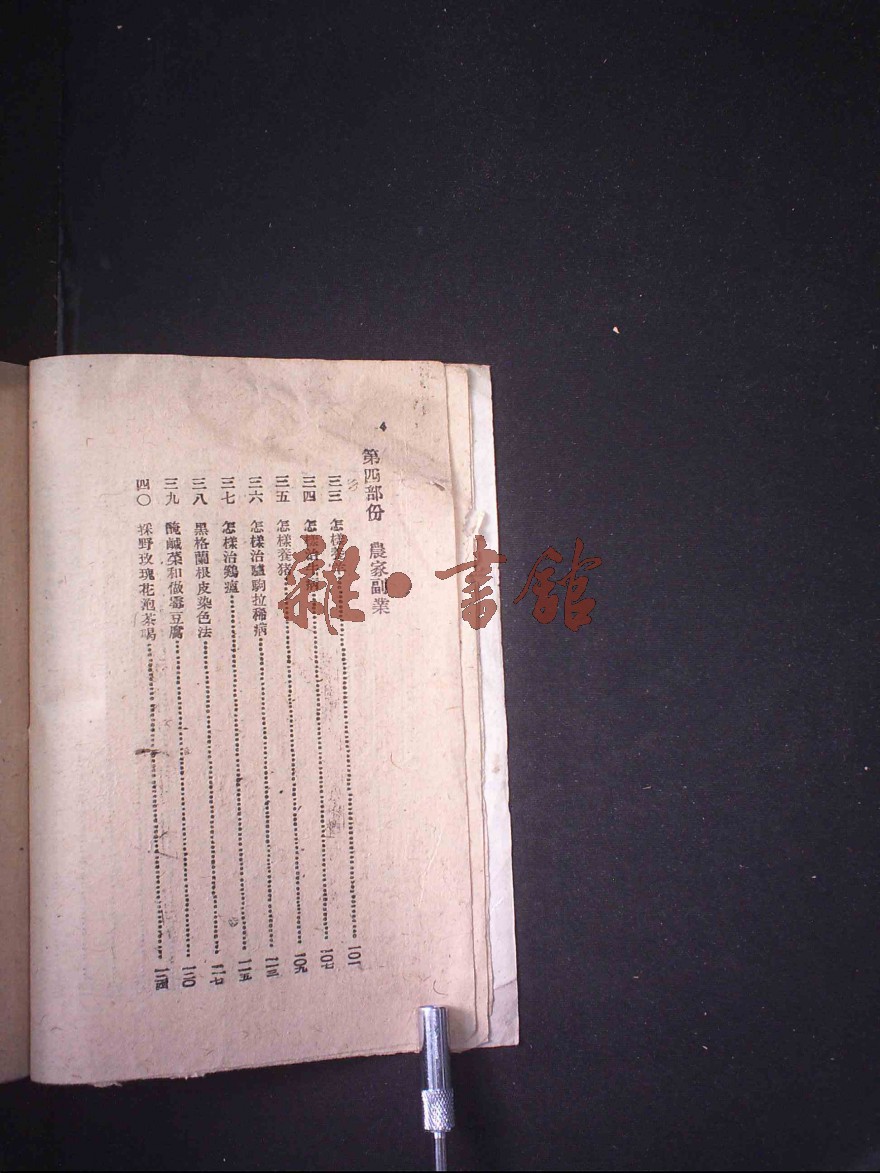 4
第四部份　農家副業
三三　怎樣養…………一〇一
三四　怎樣治牛病…………一〇七
三五　怎樣養猪…………一〇九
三六　怎樣治驢駒拉稀病…………一一三
三七　怎樣治鷄瘟…………一一五
三八　黑格蘭根皮染色法…………一一七
三九　醃鹹菜和做霉豆腐…………一二〇
四〇　採野玫瑰花泡茶喝…………一二四
雜·書館